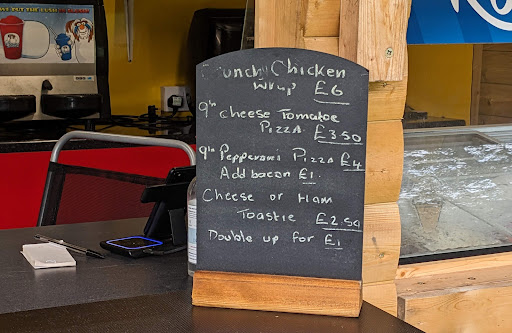 Crunchy Chicken
Wrap £6
9in cheese Tomatoe
Pizza £3.50
9in Pepperami Pizza £4
Add bacon £1.
Cheese or Ham
Toastie £2.50
Double up for £1